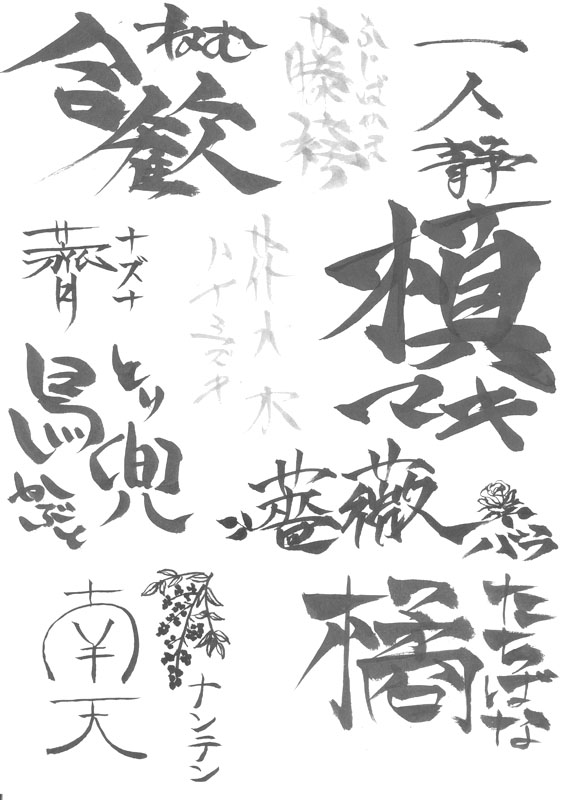 一人静
ふじばかま
藤袴
ねむ
合歓
槇
マキ
花水木
ハナミズキ
ナズナ
薺
とり
かぶと
鳥兜
薔薇
バラ
たちばな
橘
ナンテン
南天